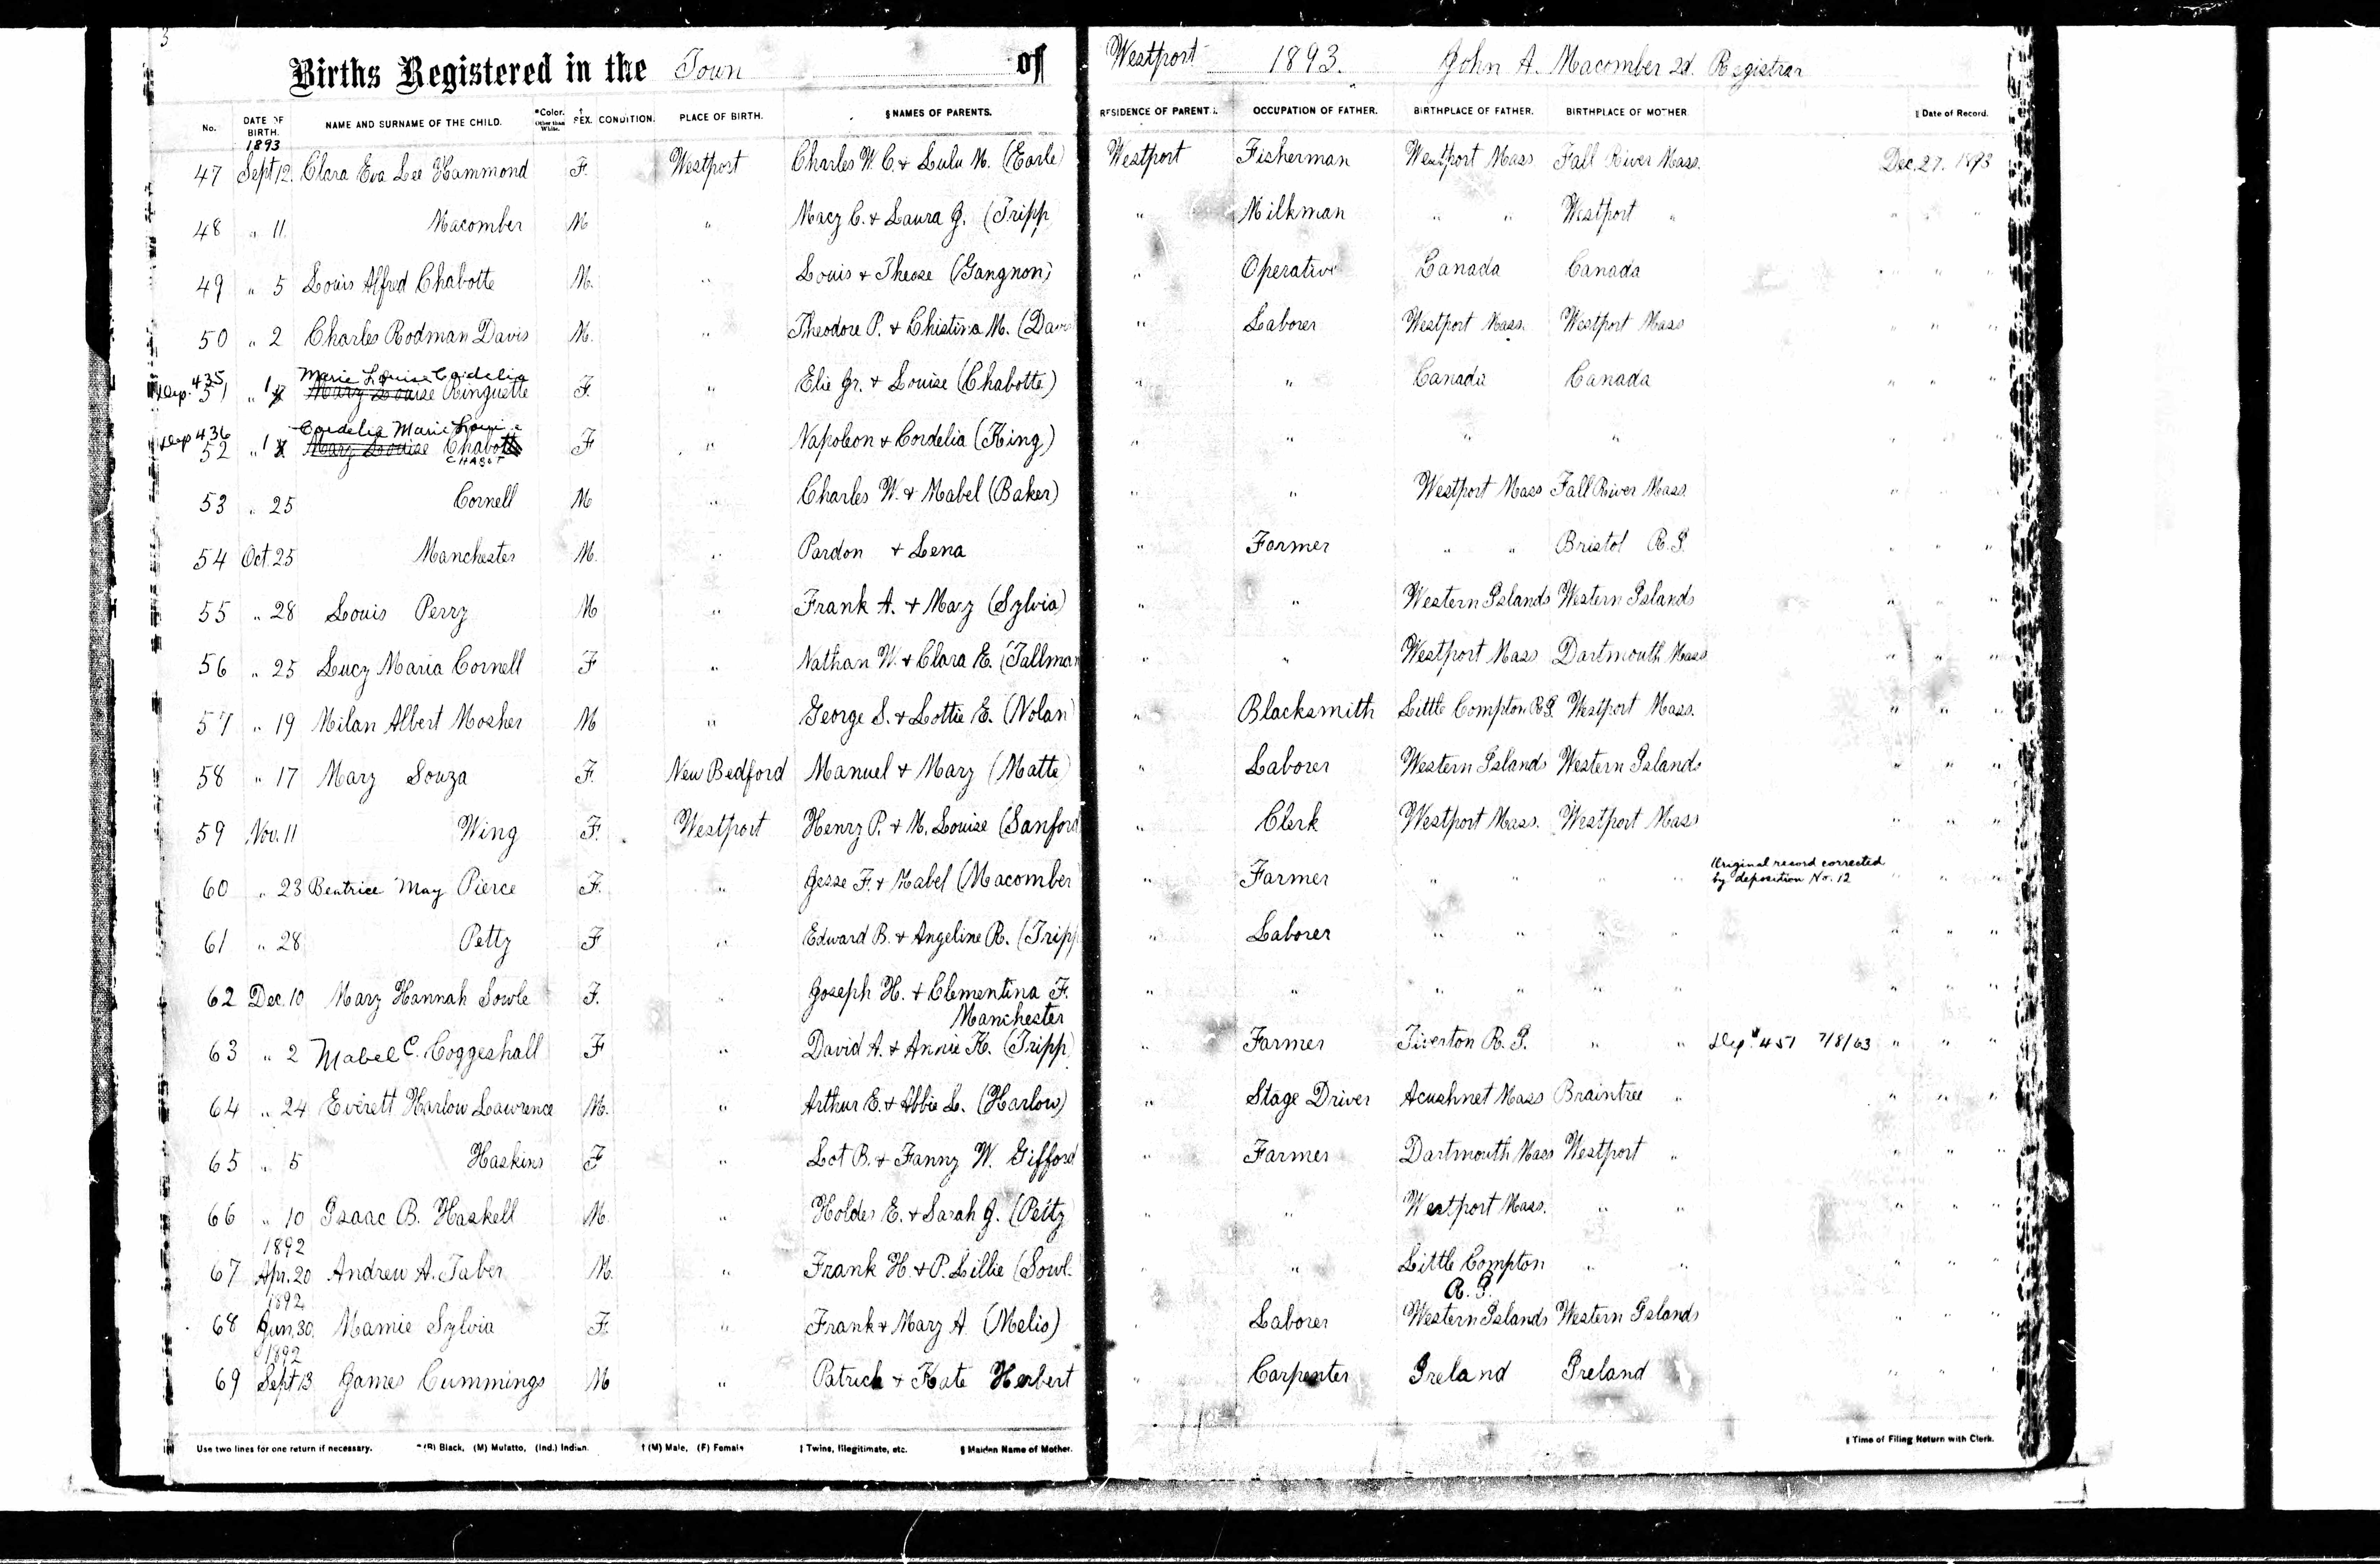 3
Births Registered in the Town of Westport 1893. John A. Macomber 2d. Registrar
No. DATE OF BIRTH. NAME AND SURNAME OF THE CHILD. *Color. Other than White. † SEX. CONDITION. PLACE OF BIRTH. § NAMES OF PARENTS. RESIDENCE OF PARENTS. OCCUPATION OF FATHER. BIRTHPLACE OF FATHER. BIRTHPLACE OF MOTHER. ‖ Date of Record.
1893
47 Sept 12. Clara Eva Lee Hammond F. Westport Charles W. C. & Lulu M. (Earle) Westport Fisherman Westport Mass Fall River Mass. Dec. 27. 1893
48 " 11. Macomber M " Macy C. & Laura J. (Tripp " Milkman " " Westport " " " "
49 " 5 Louis Alfred Chabotte M. " Louis & Therse (Gangnon) " Operative Canada Canada " " "
50 " 2 Charles Rodman Davis M. " Theodore P. & Chistina M. (Davis " Laborer Westport Mass. Westport Mass " " "
Marie Louise Cordelia
Dep. 435 51 " 1 Mary Louise Ringuette F. " Elie Jr. & Louise (Chabotte) " " Canada Canada " " "
Cordelia Marie Louise
Dep 436 52 " 1 Mary Louise Chabott F " Napoleon & Cordelia (King) " " " " " " "
CHABOT
53 " 25 Cornell M " Charles W. & Mabel (Baker) " " Westport Mass Fall River Mass. " " "
54 Oct. 25 Manchester M. " Pardon & Lena " Farmer " " Bristol R.I. " " "
55 " 28 Louis Perry M " Frank A. & Mary (Sylvia) " " Western Islands Western Islands " " "
56 " 25 Lucy Maria Cornell F " Nathan W. & Clara E. (Tallman " " Westport Mass Dartmouth Mass " " "
57 " 19 Milan Albert Mosher M " George S. & Lottie E. (Nolan) " Blacksmith Little Compton R.I. Westport Mass. " " "
58 " 17 Mary Souza F. New Bedford Manuel & Mary (Matte) " Laborer Western Islands Western Islands " " "
59 Nov. 11 Wing F. Westport Henry P. & M. Louise (Sanford " Clerk Westport Mass. Westport Mass " " "
60 " 23 Beatrice May Pierce F. " Jesse F. & Mabel (Macomber " Farmer " " " " Original record corrected " " "
by deposition No. 12
61 " 28 Petty F " Edward B. & Angeline R. (Tripp " Laborer " " " " " " "
62 Dec. 10 Mary Hannah Sowle F. " Joseph H. & Clementina F. " " " " " " " " "
Manchester
63 " 2 Mabel C. Coggeshall F " David A. & Annie K. (Tripp) " Farmer Tiverton R.I. " " Dep # 451 7/8/63 " " "
64 " 24 Everett Harlow Lawrence M. " Arthur E. & Abbie L. (Harlow) " Stage Driver Acushnet Mass Braintree " " " "
65 " 5 Haskins F " Lot B. & Fanny W. Gifford " Farmer Dartmouth Mass Westport " " " "
66 " 10 Isaac B. Haskell M. " Holder E. & Sarah J. (Petty " " Westport Mass. " " " " "
1892
67 Apr. 20 Andrew A. Taber M. " Frank H. & P. Lillie (Sowl. " " Little Compton " " " " "
R.I.
1892
68 Jun. 30. Mamie Sylvia F. " Frank & Mary A. (Melio) " Laborer Western Islands Western Islands " " "
1892
69 Sept 13 James Cummings M " Patrick & Kate Herbert " Carpenter Ireland Ireland " " "
Use two lines for one return if necessary. *(B) Black, (M) Mulatto, (Ind.) Indian. † (M) Male, (F) Female ‡ Twins, Illegitimate, etc. § Maiden Name of Mother. ‖ Time of Filing Return with Clerk.